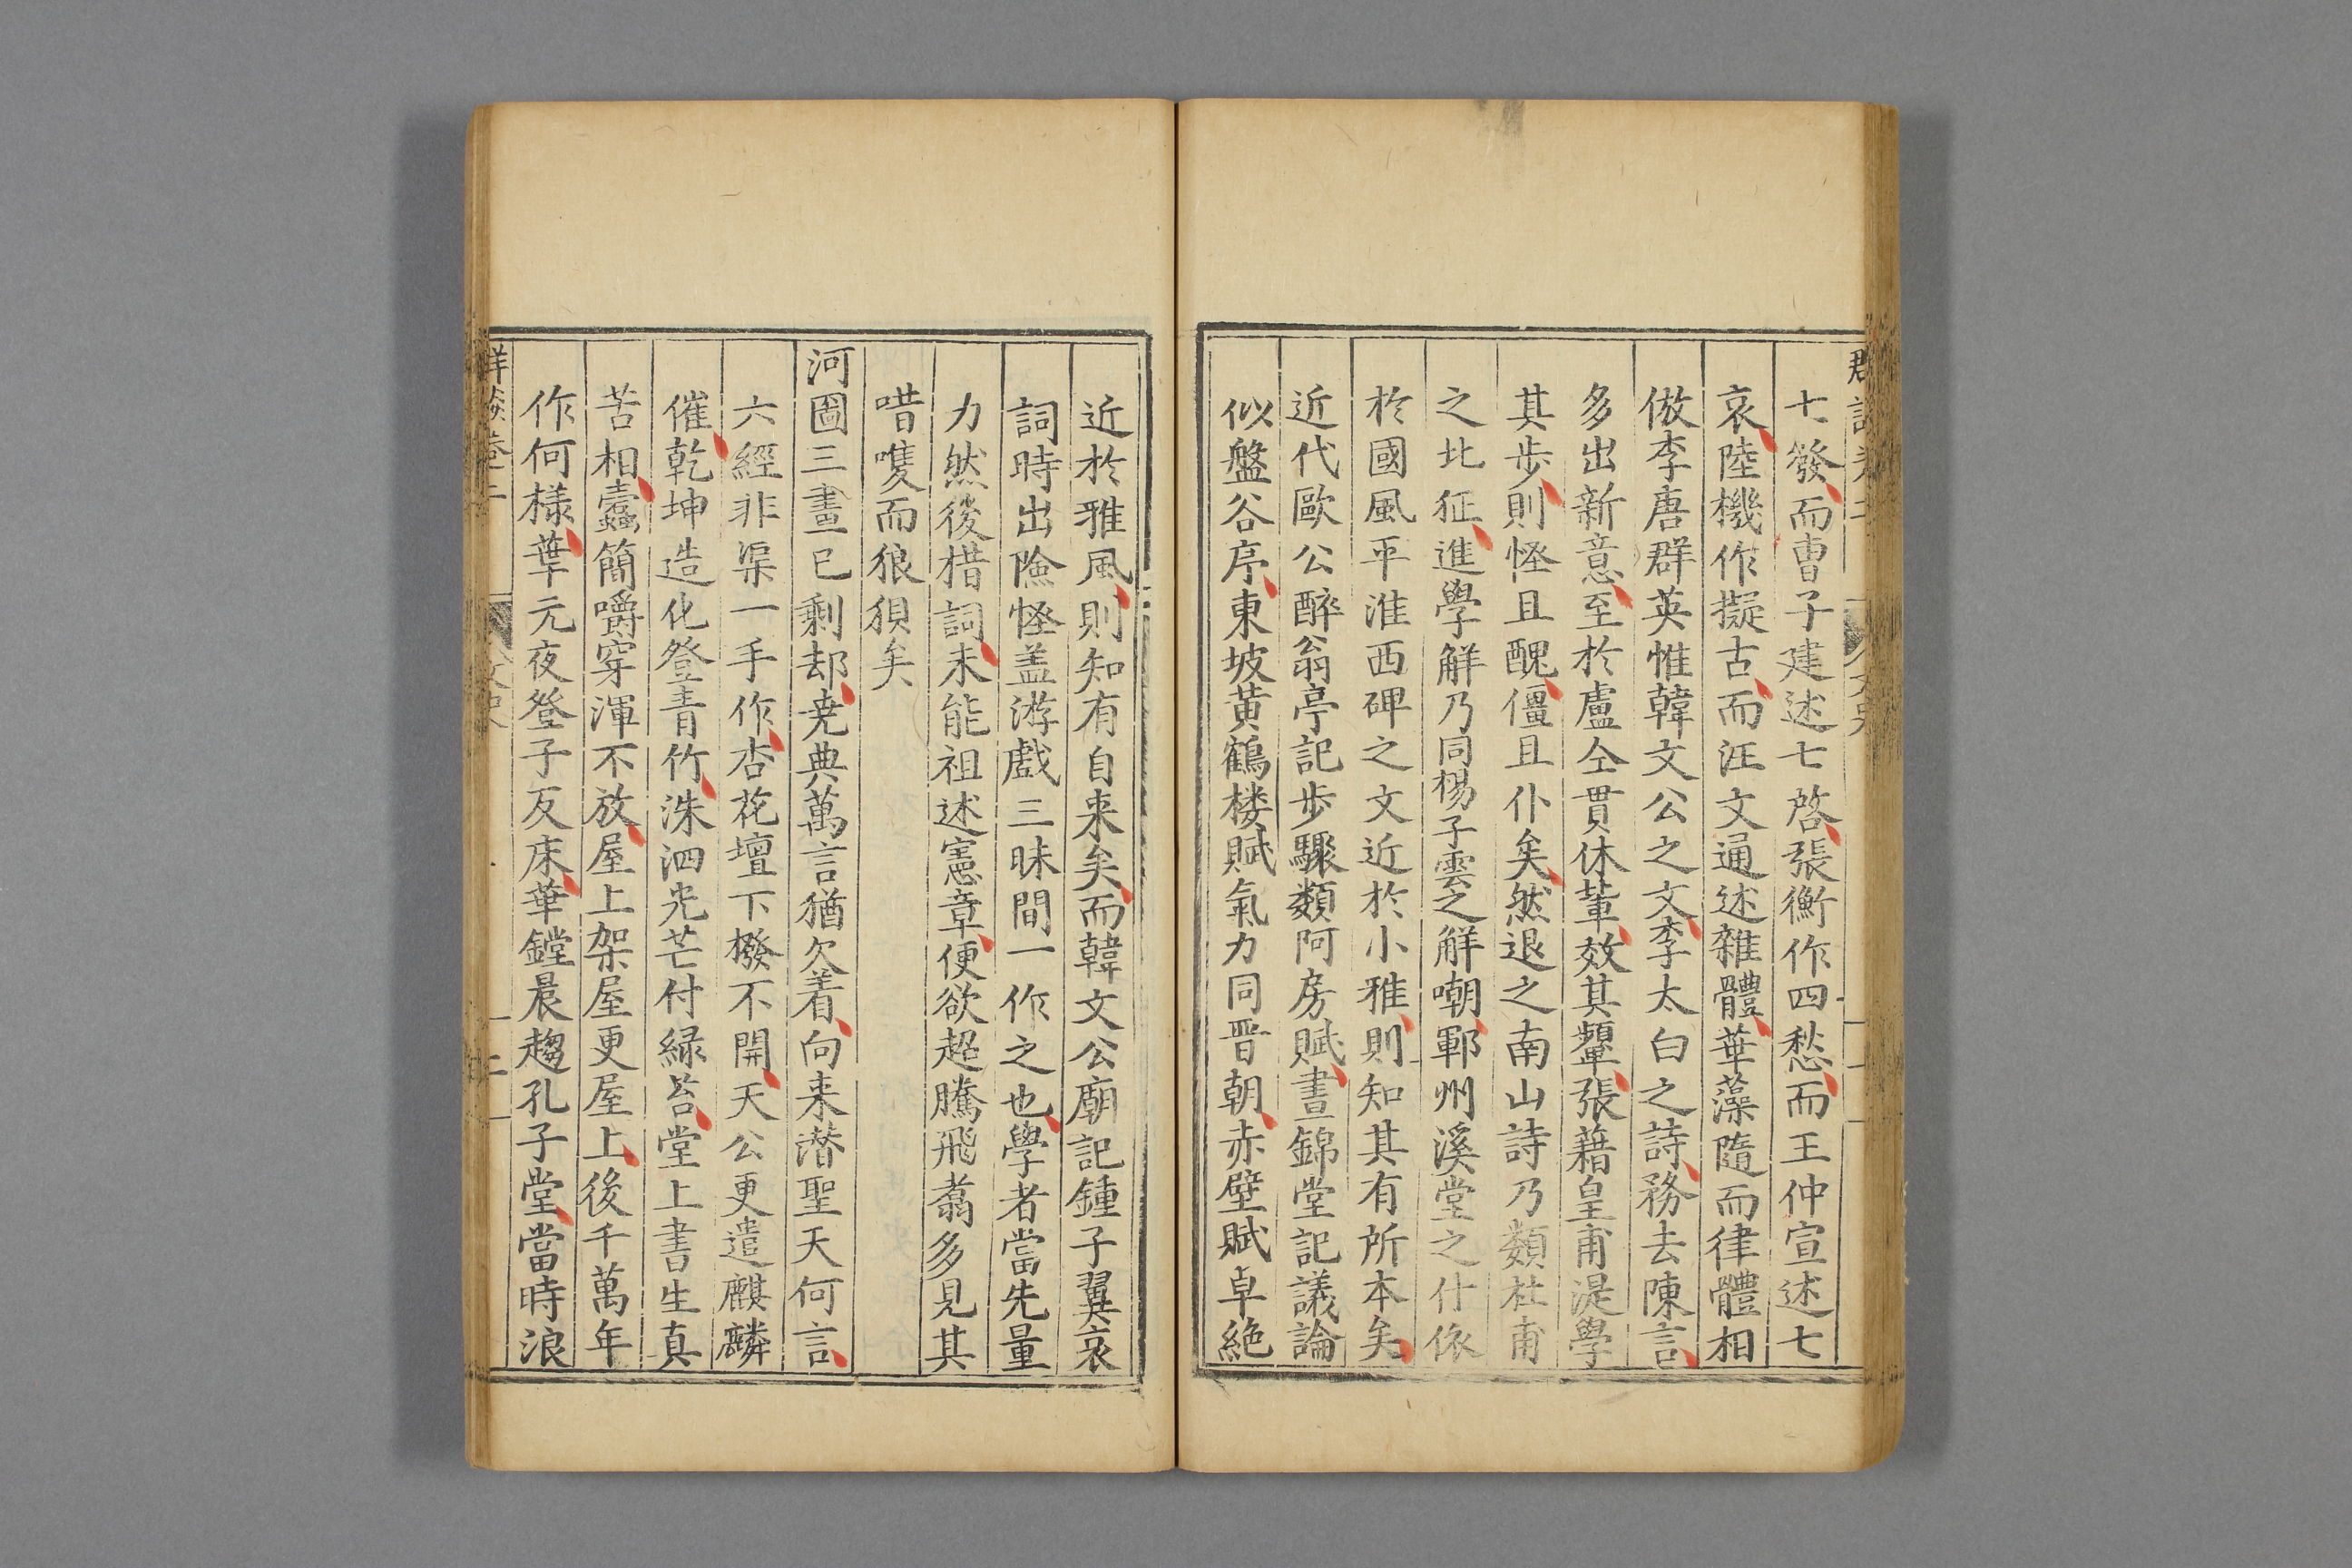 七發而曺子建述七啓張衡作四愁而王仲宣述七
哀陸機作擬古而汪文通述雜體華藻隨而律體相
倣李唐群英惟韓文公之文李太白之詩務去陳言
多出新意至於盧仝貫休輩效其顰張藉皇甫湜學
其歩則怪且醜僵且仆矣然退之南山詩乃類杜甫
之北征進學觧乃同楊子雲之觧嘲鄆州溪堂之什依
於國風平淮西碑之文近於小雅則知其有所本矣
近代歐公醉翁亭記歩驟類阿房賦晝錦堂記議論
似盤谷序東坡黄鶴楼賦氣力同晋朝赤壁賦卓絶
近於雅風則知有自来矣而韓文公廟記鍾子翼哀
詞時出險怪盖游戲三昧間一作之也學者當先量
力然後措詞未能祖述憲章便欲超騰飛翥多見其
唶嘆而狼狽矣
河圖三畫已剩却尭典萬言猶欠着向来潜聖天何言
六經非渠一手作杏花壇下撥不開天公更遣麒麟
催乾坤造化登青竹洙泗光芒付緑苔堂上書生真
苦相蠹簡嚼穿渾不放屋上架屋更屋上後千萬年
作何樣葉元夜登子反床華鏜晨趨孔子堂當時浪